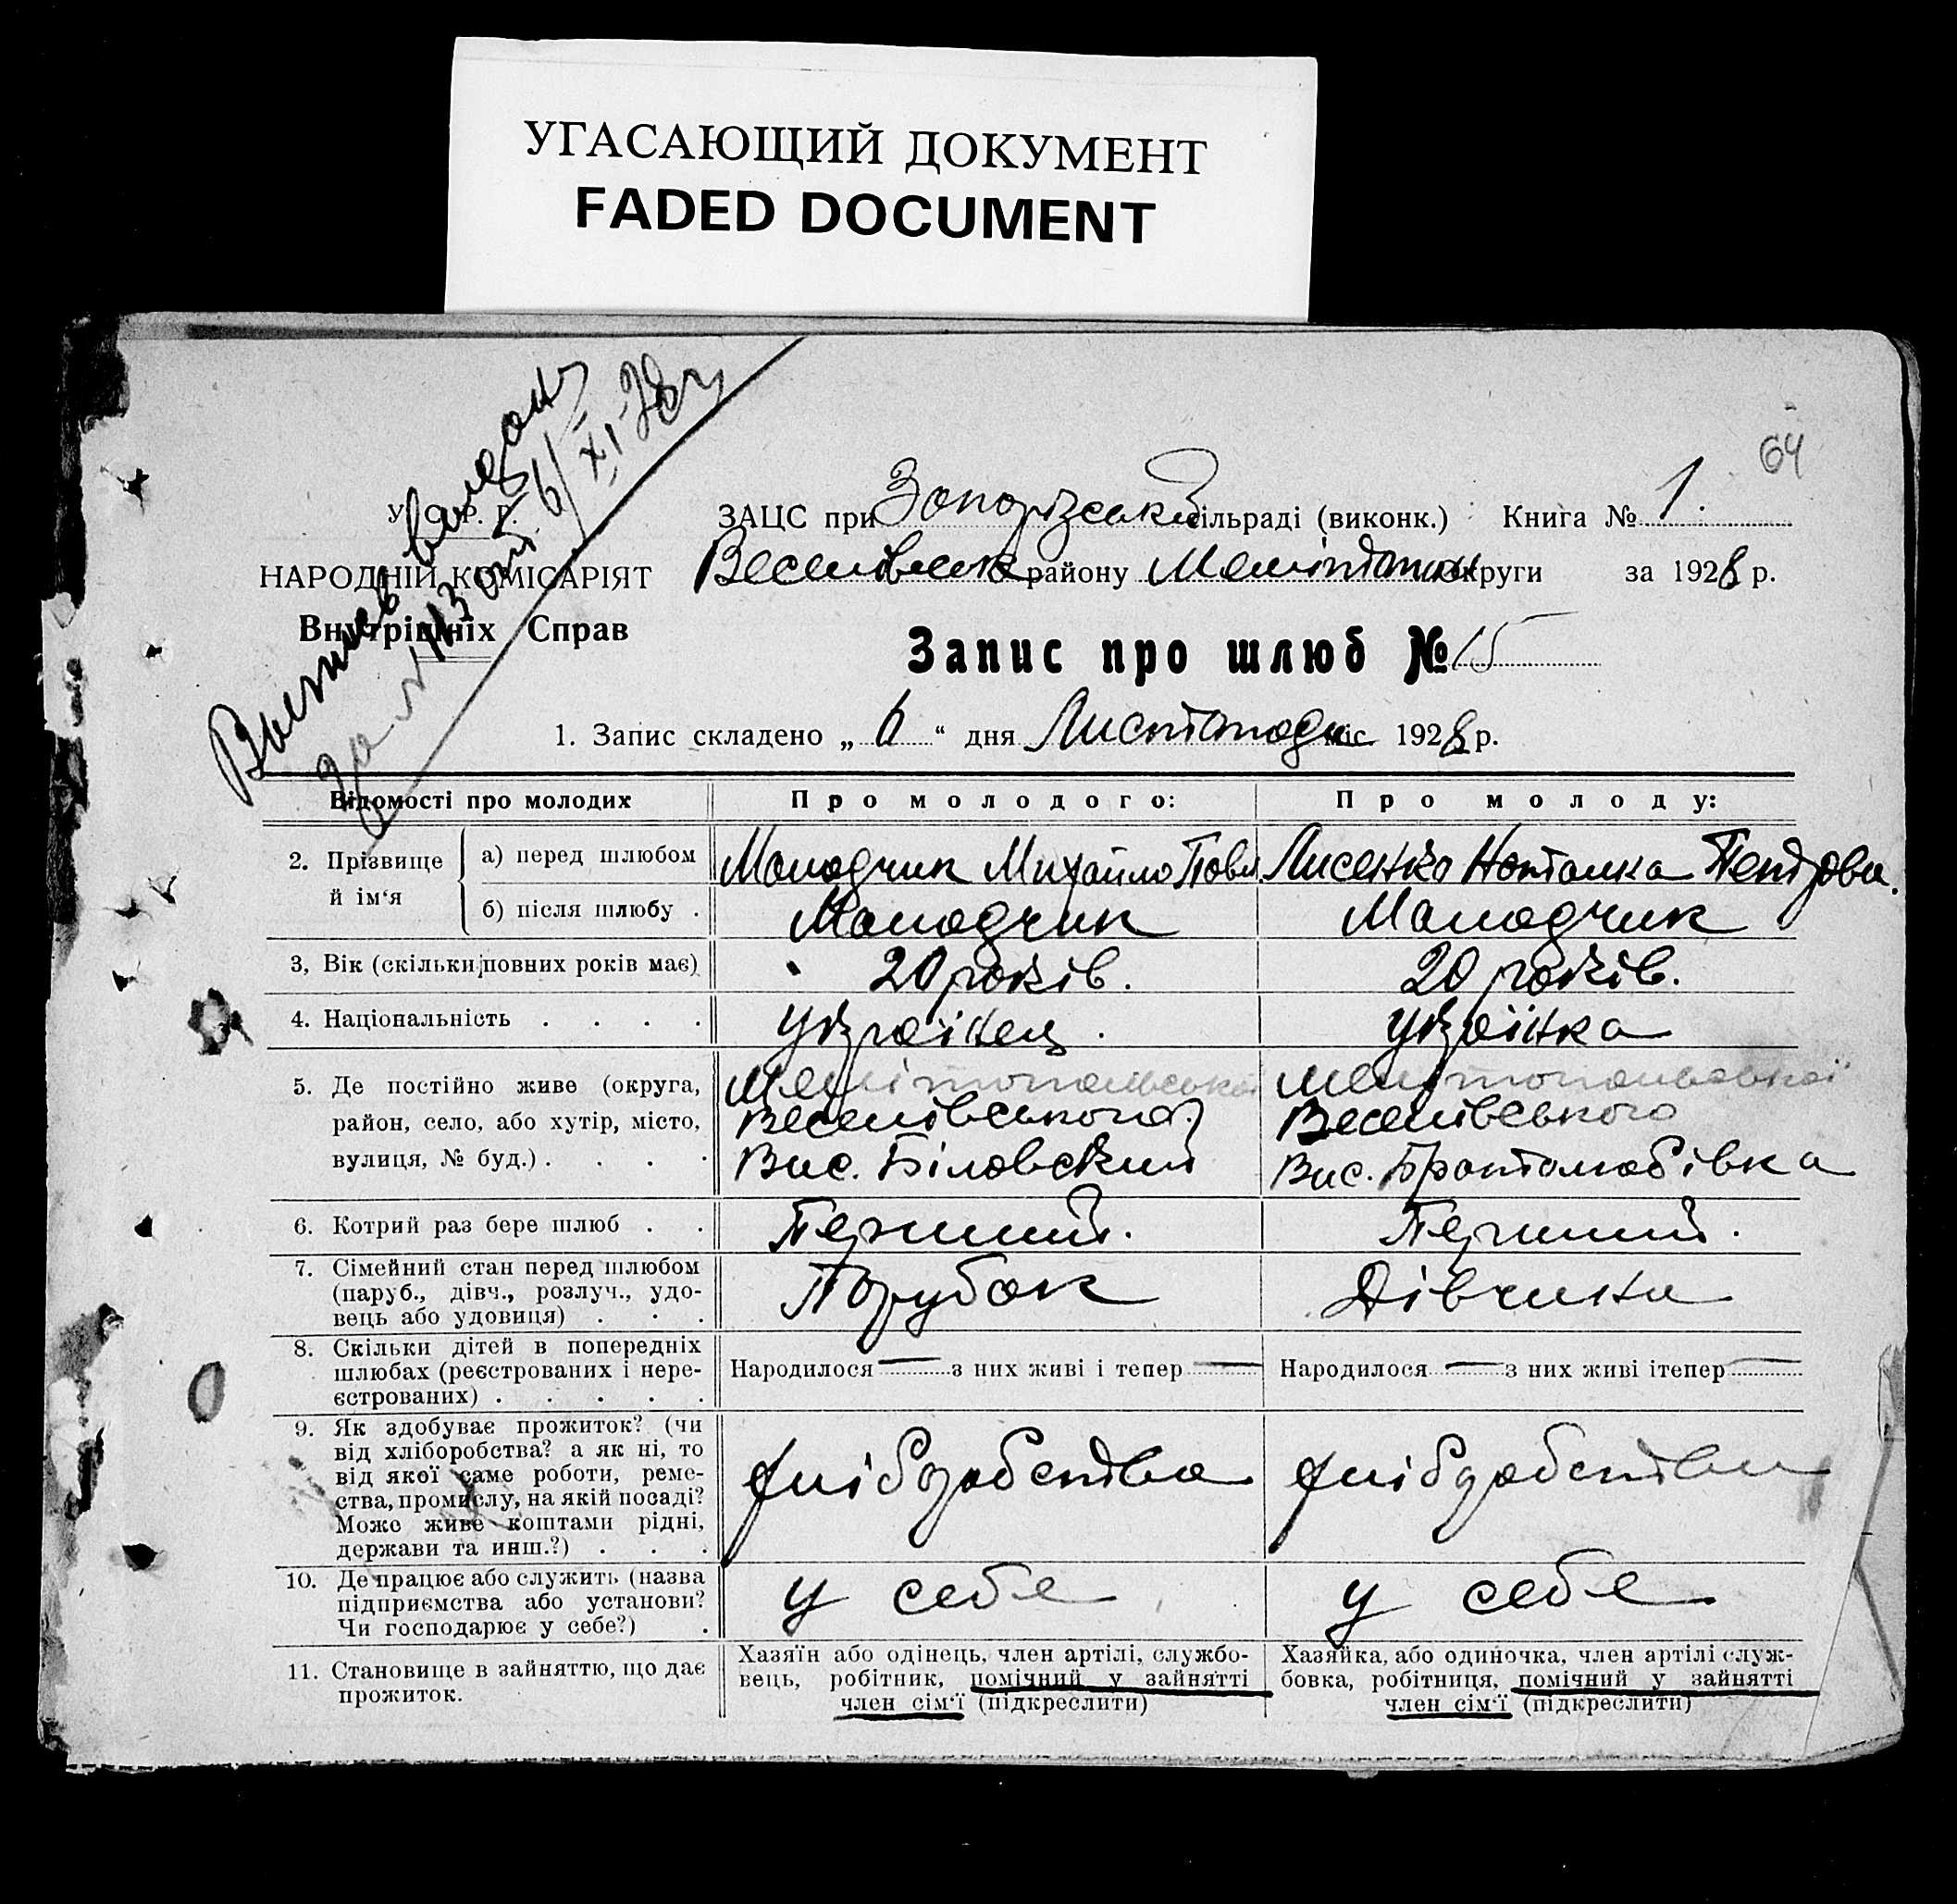 УГАСАЮЩИЙ ДОКУМЕНТ
FADED DOCUMENT
64
У. С. Р. Р.
НАРОДНІЙ КОМІСАРІЯТ
Внутрішніх Справ
6/XI-28 г
ЗАЦС при Запорізській сільраді (виконк.) Книга № 1.
Веселівськ району Мелітопольск округи за 1928 р.
Запис про шлюб № 15
1. Запис складено „ 6 “ дня Листопада міс. 1928 р.
Відомості про молодих
Про молодого:
Про молоду:
2. Прізвище й ім‘я
а) перед шлюбом
Молодчик Михайло Павл.
Лисенко Наталка Петрова.
б) після шлюбу .
Молодчик
Молодчик
3, Вік (скільки повних років має)
20 років.
20 років.
4. Національність . . . .
Українец.
Українка
5. Де постійно живе (округа,
район, село, або хутір, місто,
вулиця, № буд.) . . . .
Мелітопольської
Веселівського
Вис. Біловский
Мелітопольської
Веселівського
Вис. Братолюбівка
6. Котрий раз бере шлюб . .
Перший.
Перший.
7. Сімейний стан перед шлюбом
(паруб., дівч., розлуч., удо-
вець або удовиця) . . .
Парубок
Дівчина
8. Скільки дітей в попередніх
шлюбах (реєстрованих і нере-
єстрованих) . . . . .
Народилося — з них живі і тепер —
Народилося — з них живі ітепер —
9. Як здобуває прожиток? (чи
від хліборобства? а як ні, то
від якої саме роботи, реме-
ства, промислу, на якій посаді?
Може живе коштами рідні,
держави та инш.?) . . .
хліборобства
хліборобства
10. Де працює або служить (назва
підприємства або установи?
Чи господарює у себе?) .
у себе
у себе
11. Становище в зайняттю, що дає
прожиток.
Хазяїн або одінець, член артілі, службо-
вець, робітник, помічний у зайнятті
член сім‘ї (підкреслити)
Хазяйка, або одиночка, член артілі служ-
бовка, робітниця, помічний у зайнятті
член сім‘ї (підкреслити)